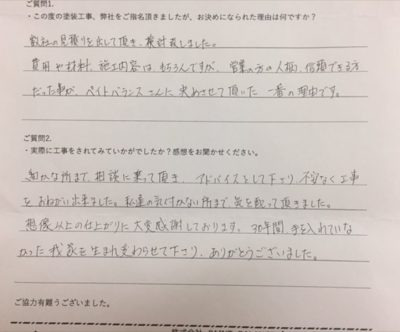 ご質問1.
・この度の塗装工事、弊社をご指名頂きましたが、お決めになられた理由は何ですか？
数社の見積りを出して頂き、検討致しました。
費用や材料、施工内容はもちろんですが、営業の方の人柄、信頼できる方
だった事が、ペイトバランスさんに決めさせて頂いた一番の理由です。
ご質問2.
・実際に工事をされてみていかがでしたか？感想をお聞かせください。
細かな所まで相談に乗って頂き、アドバイスをして下さり、不安なく工事
をおねがい出来ました。私達の気付かない所まで気を配って頂きました。
想像以上の仕上がりに大変感謝しております。30年間手を入れていな
かった我家を生まれ変わらせて下さり、ありがとうございました。
ご協力有難うございました。